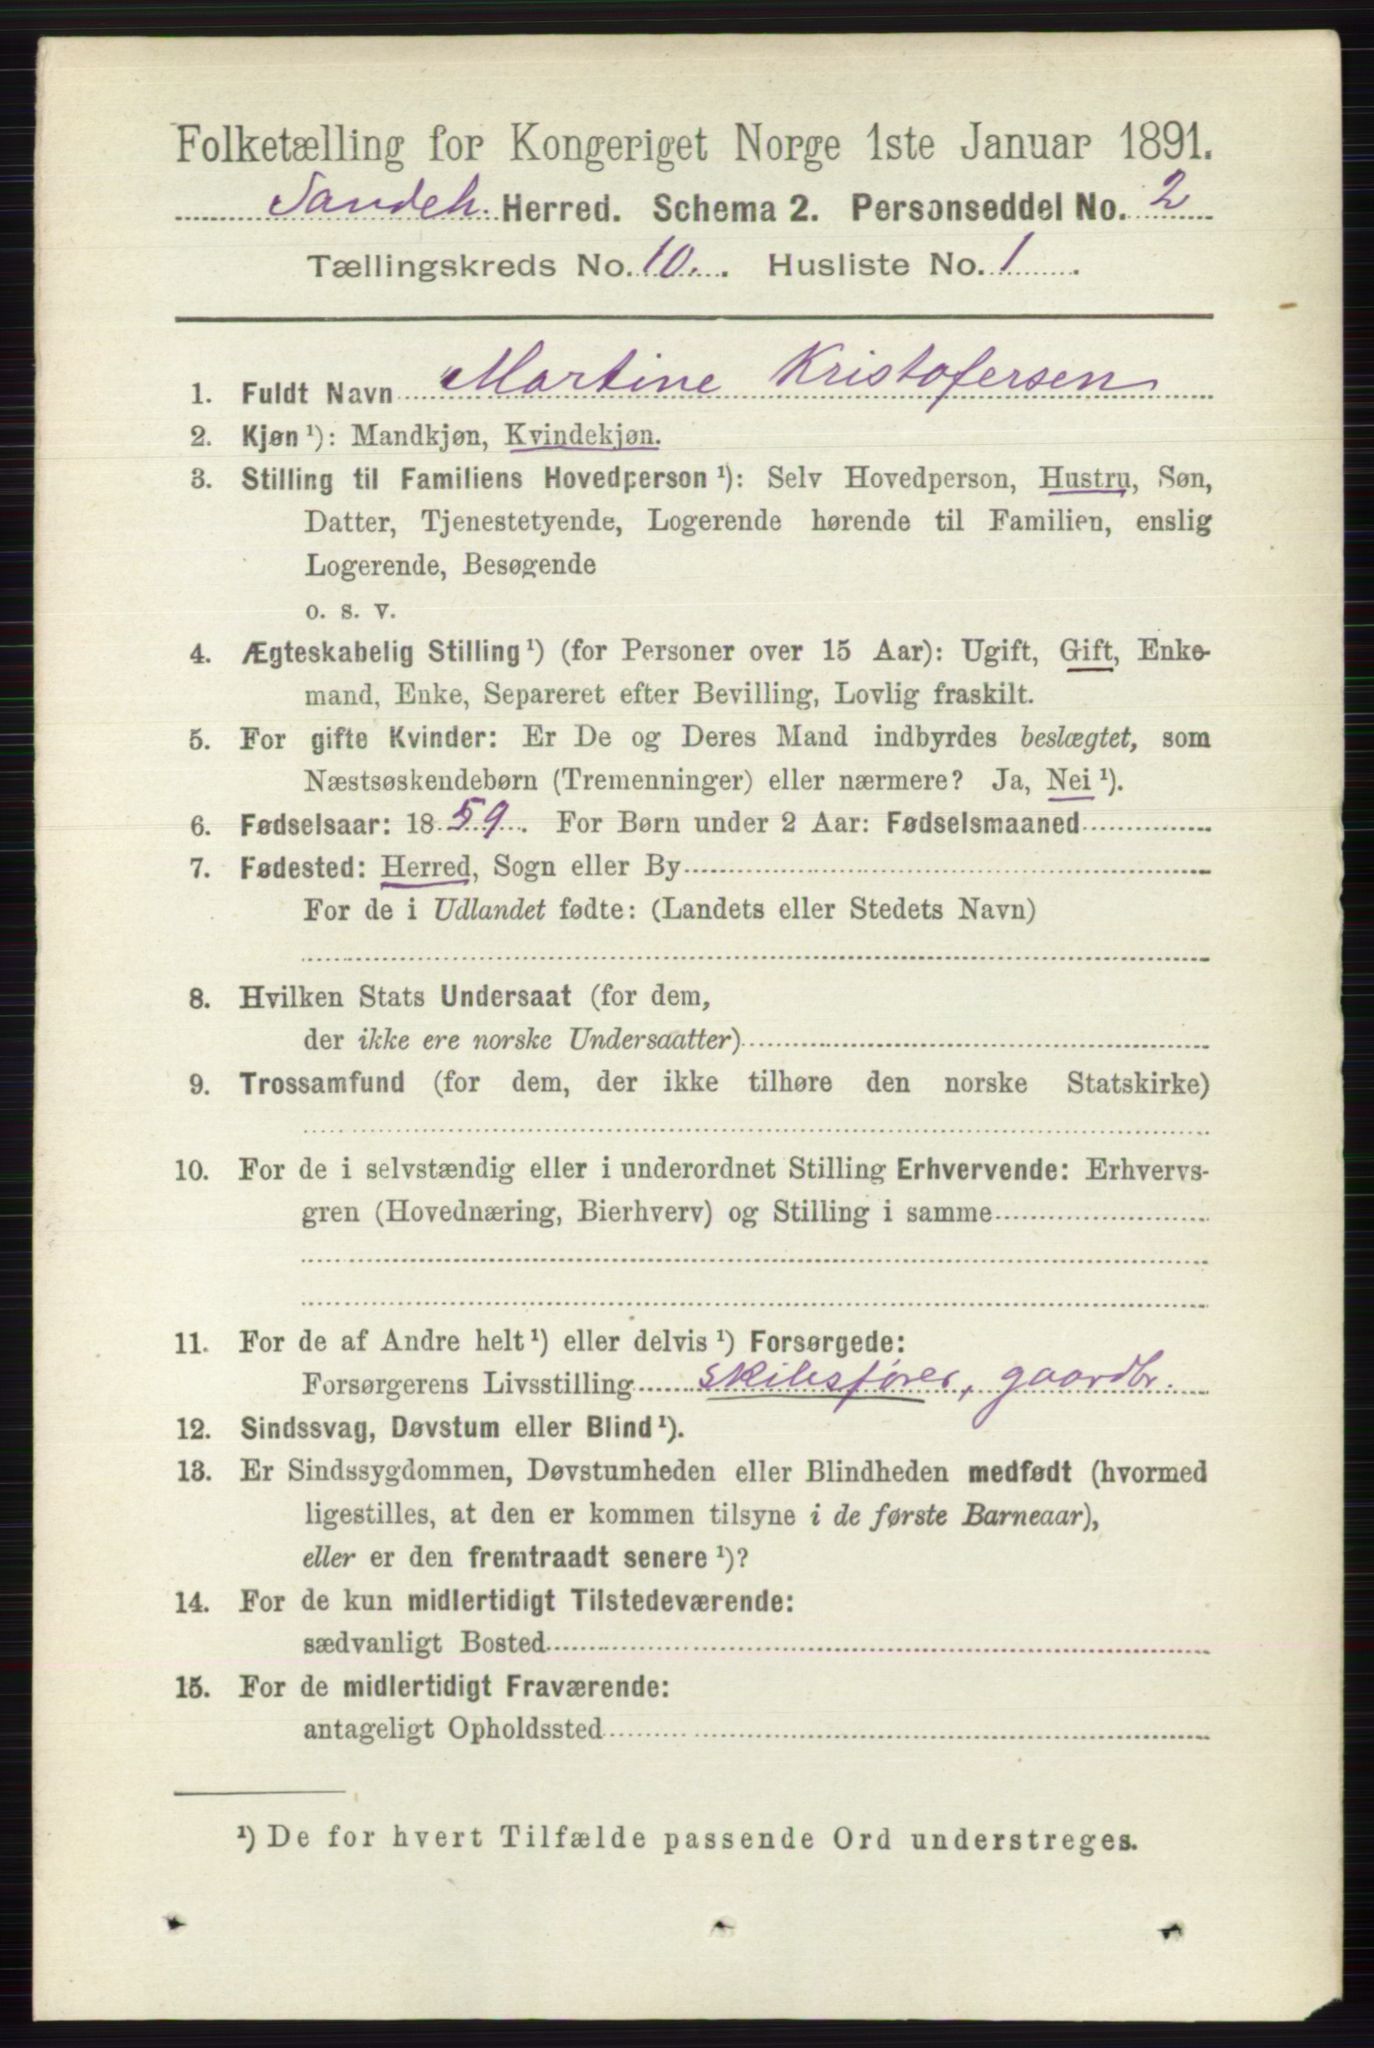 Folketælling for Kongeriget Norge 1ste Januar 1891.
Sandeh. Herred. Schema 2. Personseddel No. 2
Tællingskreds No. 10. Husliste No. 1.
1. Fuldt Navn Martine Kristofersen
2. Kjøn ¹): Mandkjøn, Kvindekjøn.
3. Stilling til Familiens Hovedperson ¹): Selv Hovedperson, Hustru, Søn,
Datter, Tjenestetyende, Logerende hørende til Familien, enslig
Logerende, Besøgende
o. s. v.
4. Ægteskabelig Stilling ¹) (for Personer over 15 Aar): Ugift, Gift, Enke-
mand, Enke, Separeret efter Bevilling, Lovlig fraskilt.
5. For gifte Kvinder: Er De og Deres Mand indbyrdes beslægtet, som
Næstsøskendebørn (Tremenninger) eller nærmere? Ja, Nei ¹).
6. Fødselsaar: 1859. For Børn under 2 Aar: Fødselsmaaned
7. Fødested: Herred, Sogn eller By
For de i Udlandet fødte: (Landets eller Stedets Navn)
8. Hvilken Stats Undersaat (for dem,
der ikke ere norske Undersaatter)
9. Trossamfund (for dem, der ikke tilhøre den norske Statskirke)
10. For de i selvstændig eller i underordnet Stilling Erhvervende: Erhvervs-
gren (Hovednæring, Bierhverv) og Stilling i samme
11. For de af Andre helt ¹) eller delvis ¹) Forsørgede:
Forsørgerens Livsstilling skibsfører, gaardbr.
12. Sindssvag, Døvstum eller Blind ¹).
13. Er Sindssygdommen, Døvstumheden eller Blindheden medfødt (hvormed
ligestilles, at den er kommen tilsyne i de første Barneaar),
eller er den fremtraadt senere ¹)?
14. For de kun midlertidigt Tilstedeværende:
sædvanligt Bosted
15. For de midlertidigt Fraværende:
antageligt Opholdssted
¹) De for hvert Tilfælde passende Ord understreges.